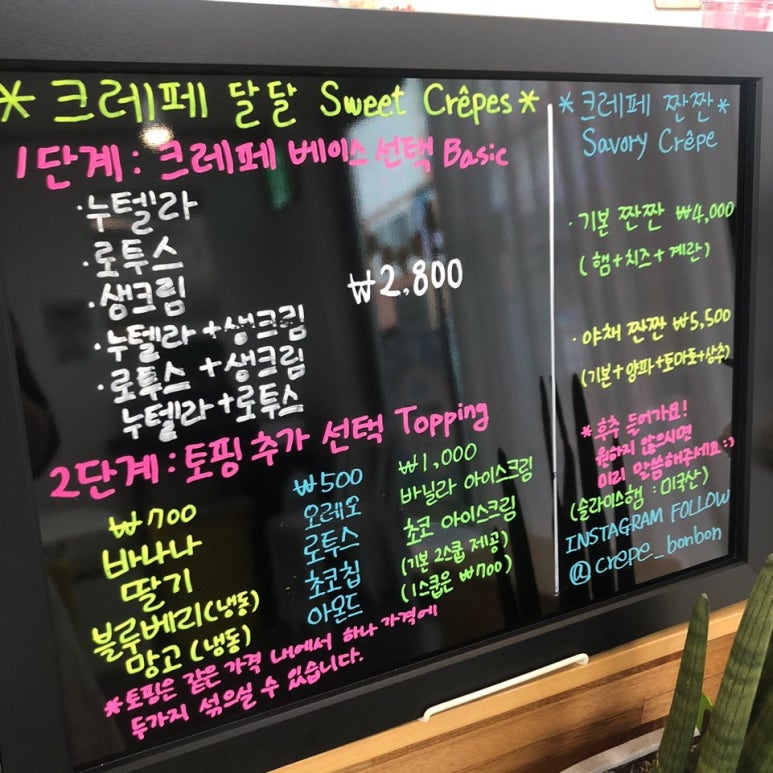 * 크레페 달달 Sweet Crêpes *
1단계 : 크레페 베이스 선택 Basic
· 누텔라
· 로투스
· 생크림
· 누텔라 + 생크림
· 로투스 + 생크림
누텔라 + 로투스
₩2,800
2단계 : 토핑 추가 선택 Topping
₩700
바나나
딸기
블루베리 (냉동)
망고 (냉동)
₩500
오레오
로투스
초코칩
아몬드
₩1,000
바닐라 아이스크림
초코 아이스크림
(기본 2스쿱 제공)
(1스쿱은 ₩700)
* 토핑은 같은 가격 내에서 하나 가격에
두가지 섞으실 수 있습니다.
* 크레페 짠짠 *
Savory Crêpe
· 기본 짠짠 ₩4,000
(햄+치즈+계란)
· 야채 짠짠 ₩5,500
(기본+양파+토마토+상추)
* 후추 들어가요!
원하지 않으시면
미리 말씀해주세요 :)
(슬라이스햄 : 미국산)
INSTAGRAM FOLLOW
@crepe_bonbon